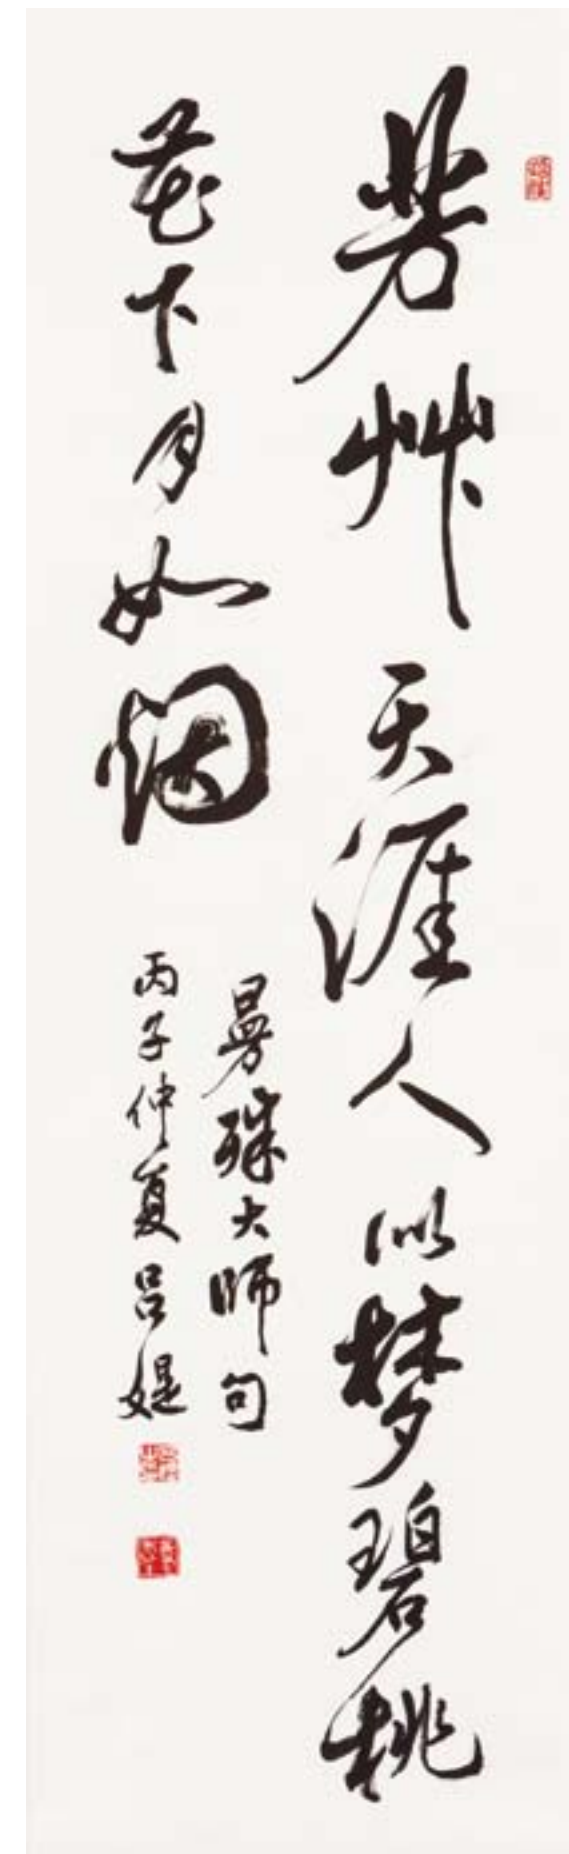 芳艸天涯人似梦碧桃
花下月如烟
曼殊大师句
丙子仲夏吕媞